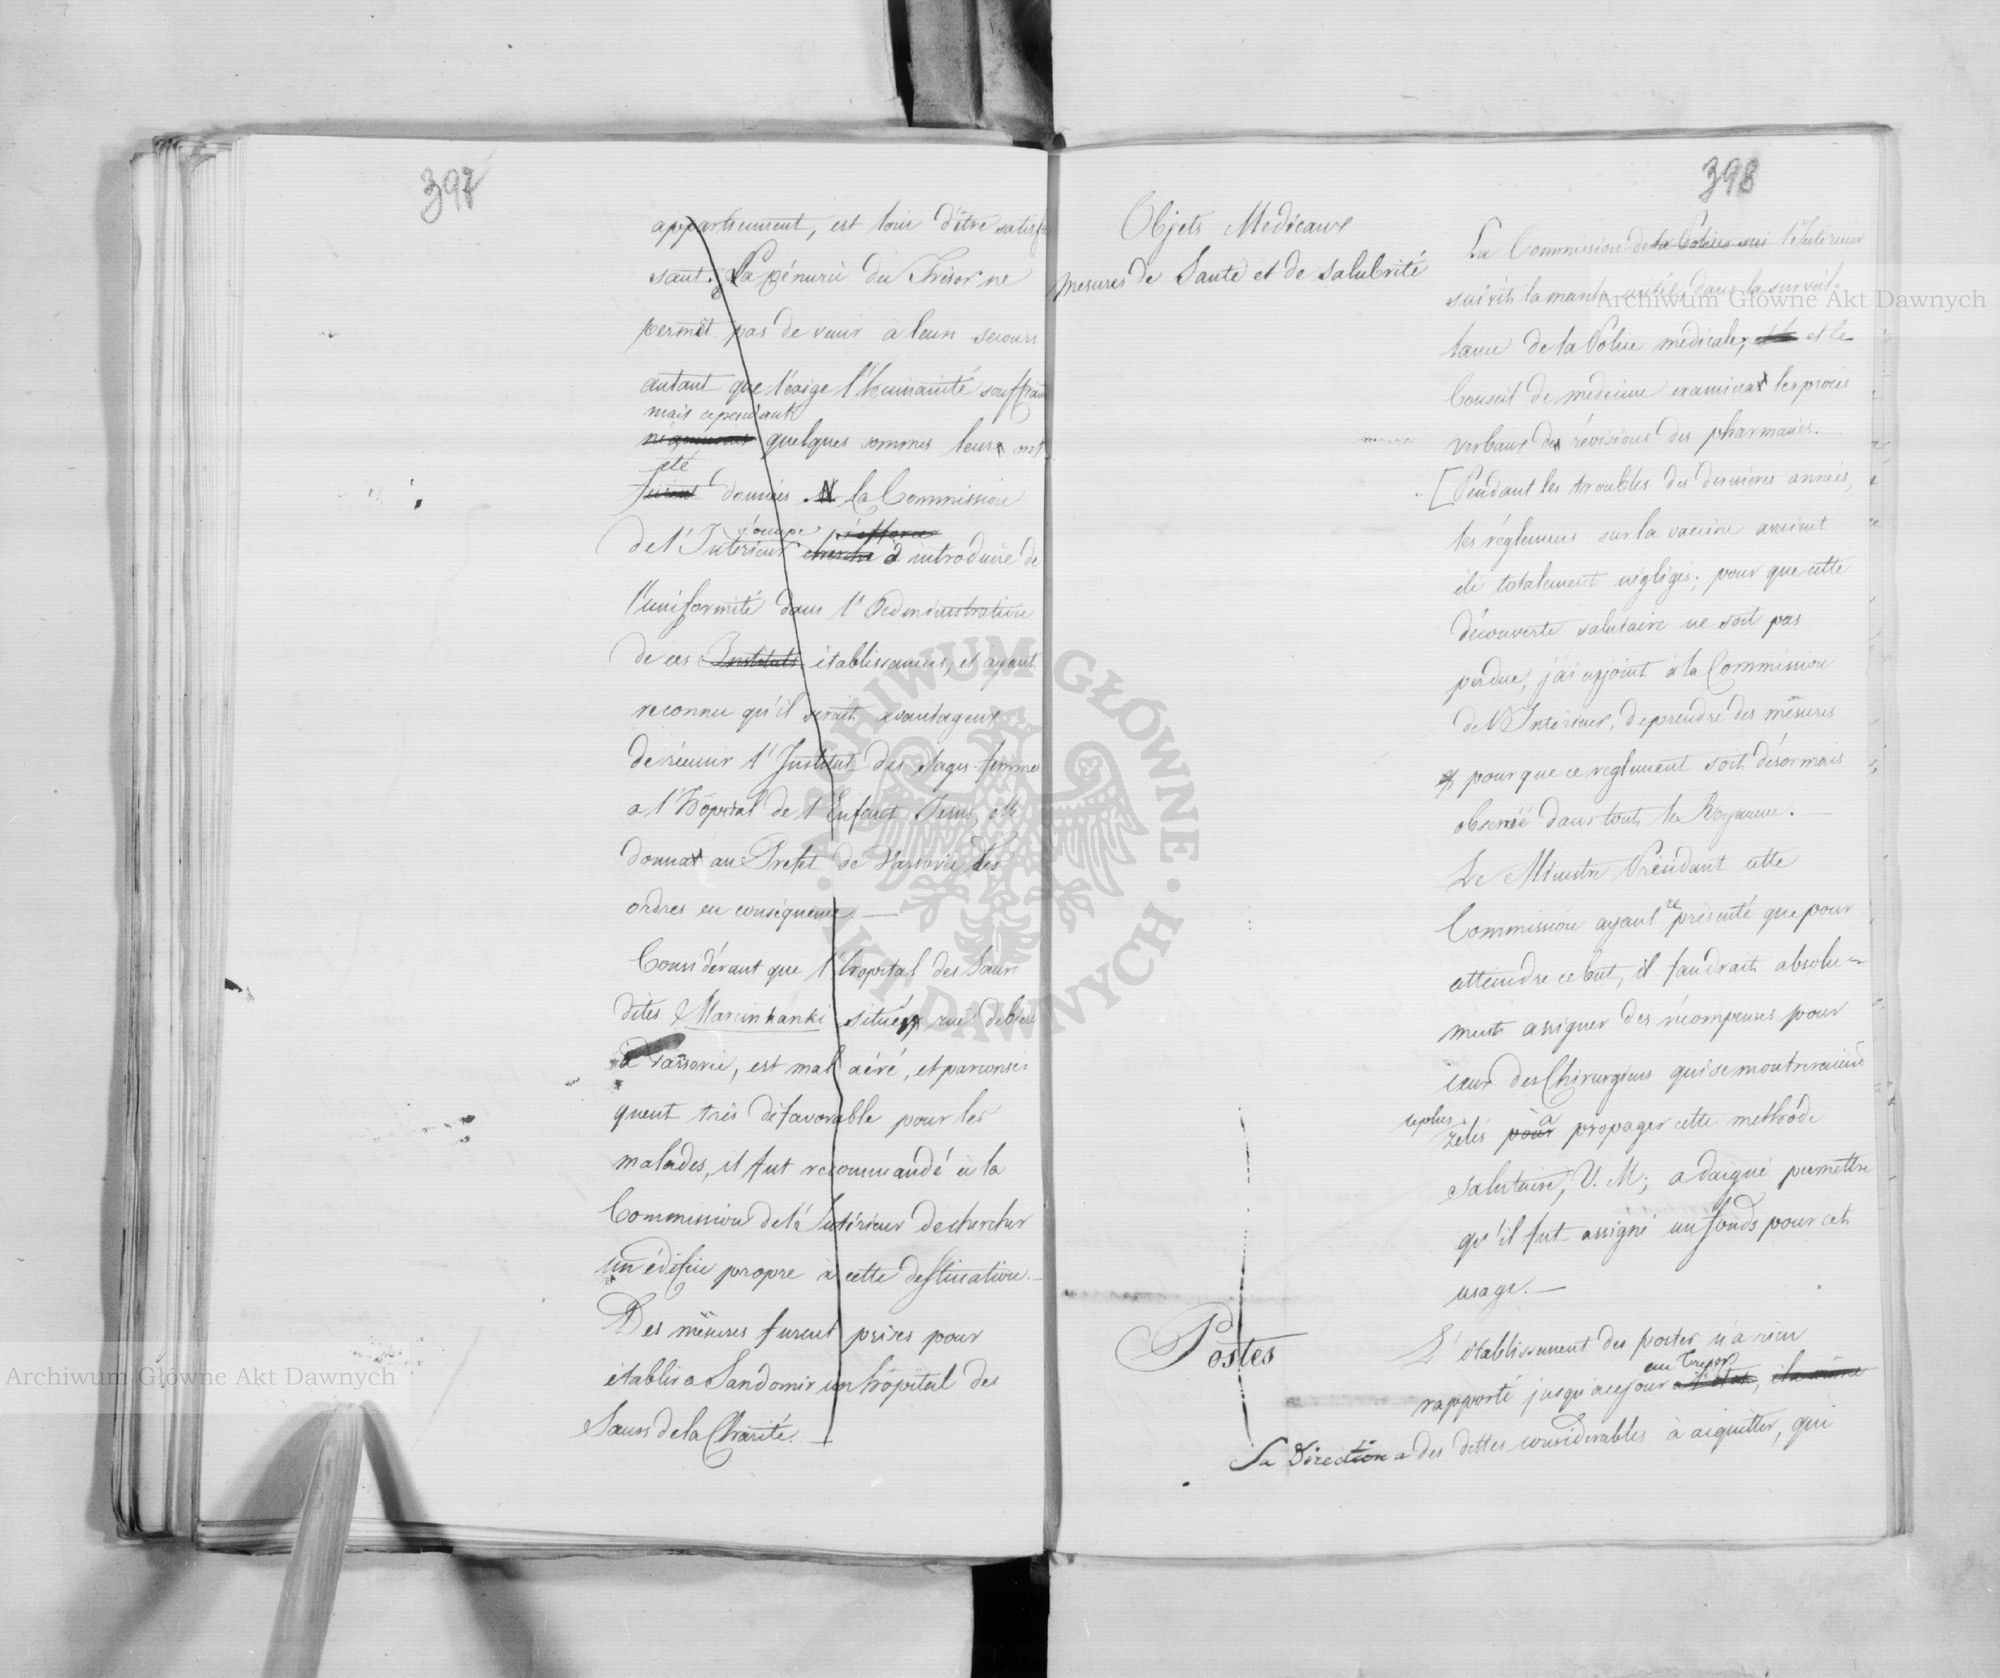 397
appartiennent, est loin d'être satisfe
sant. La pénurie du Trésor ne
permet pas de venir à leur secours
autant que l'exige l'humanité souffrante
mais cependant
quelques sommes leurs ont
été
furent données. La Commission
s'occupe s'efforce
de l'Intérieur chercha à introduire de
l'uniformité dans l'Administration
de ces Instituts établissemens, et ayant
reconnu qu'il serait avantageux
de réunir l'Institut des sages-femmes
a l'Hôpital de l'Enfant Jesus, elle
donnat au Prefet de Varsovie des
ordres en conséquence. —
Considérant que l'hopital des Sœurs
dites Marcinkanki située rue
à Varsovie, est mal aéré, et parconsé-
quent très défavorable pour les
malades, il fut recommandé à la
Commission de l'Intérieur de chercher
un édifice propre à cette destination. —
Des mesures furent prises pour
établir a Sandomir un hôpital des
Sœurs de la Charité. —
398
Objets Medicaux
mesures de Santé et de salubrité
La Commission de l'Intérieur
suivit la marche usitée dans la surveil-
lance de la Police médicale, et le
Conseil de médecine examinat les procès
verbaux des révisions des pharmacies. —
[Pendant les troubles des dernières années,
les réglemens sur la vaccine avaient
été totalement négligés; pour que cette
découverte salutaire ne soit pas
perdue, j'ai enjoint à la Commission
de l'Intérieur, de prendre des mésures
pour que ce reglement soit désormais
observé dans tout le Royaume. —
Le Ministre Présidant cette
Commission ayant représenté que pour
atteindre ce but, il faudrait absolu-
ment assigner des récompenses pour
ceux des Chirurgiens qui se montreraient
le plus
zélés pour à propager cette methode
salutaire, V. M; a daigné permettre
qu'il fut assigné un fonds pour cet
usage. —
Postes
L'établissement des postes n'a rien
au Tresor
rapporté jusqu'à ce jour a l'état,
Sa Direction a des dettes considerables à aiquitter, qui
Archiwum Główne Akt Dawnych
Archiwum Główne Akt Dawnych
ARCHIWUM GŁÓWNE · AKT DAWNYCH ·